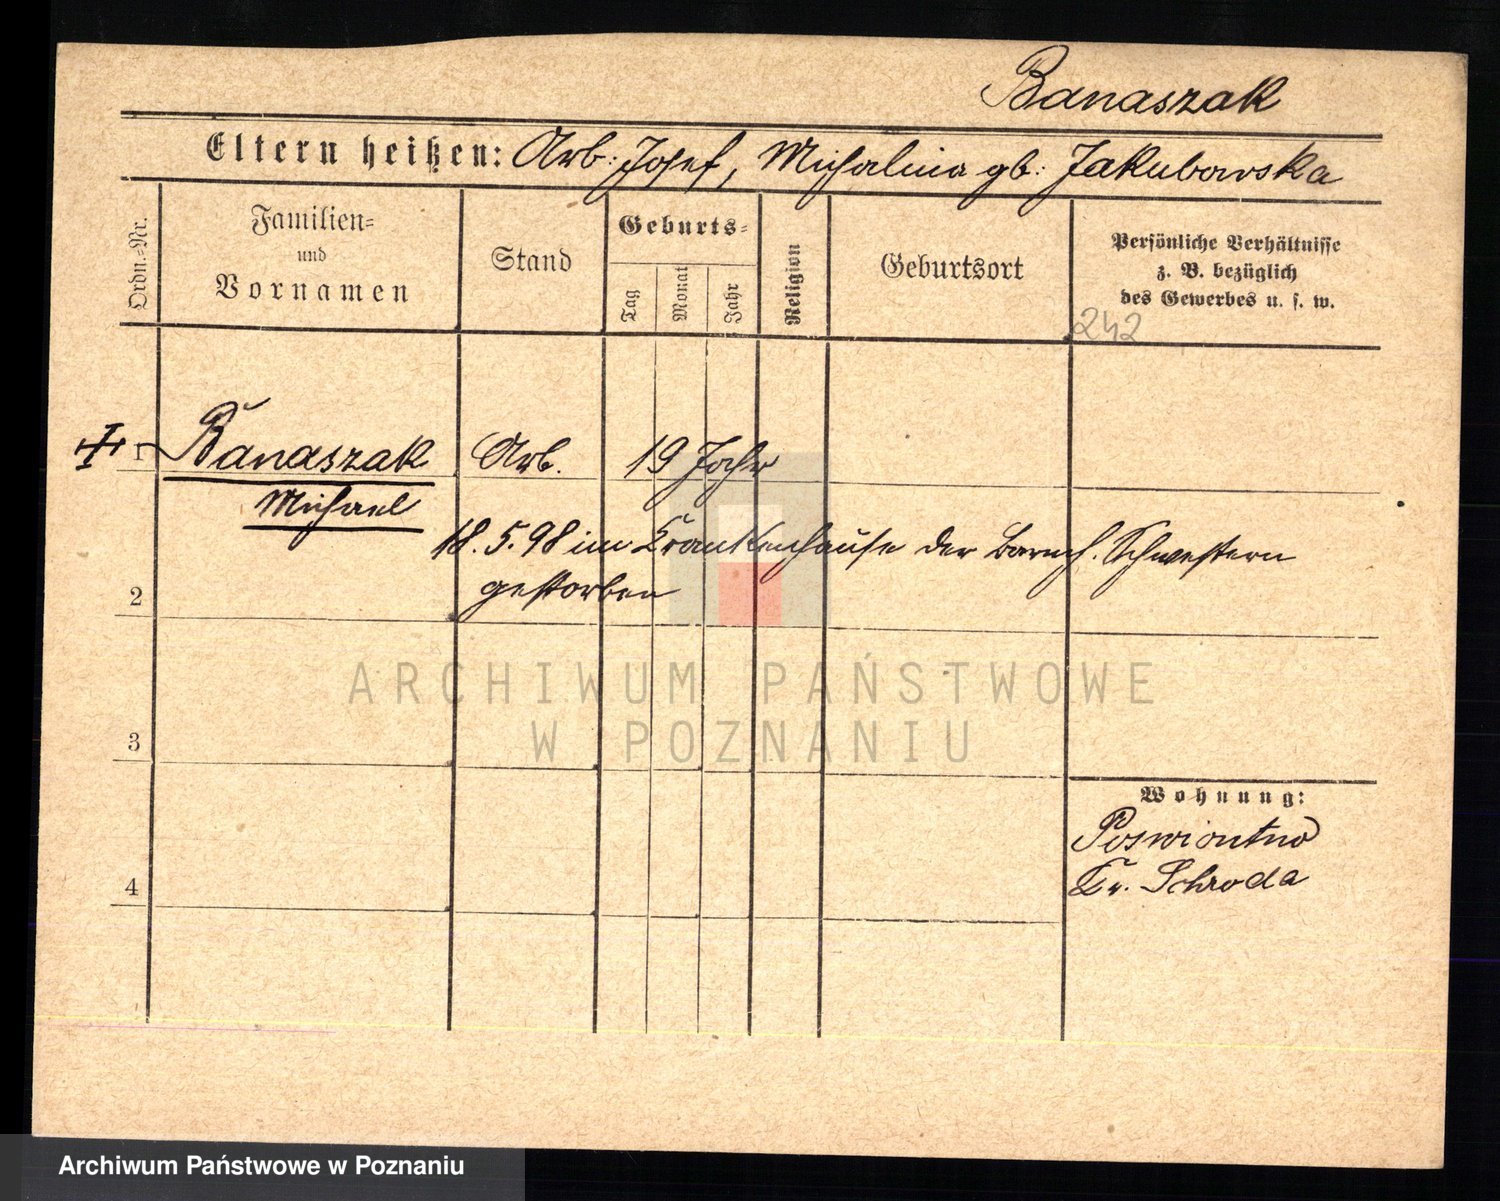 Banaszak
Eltern heißen: Arb: Josef, Michalina gb: Jakubowska
Ordn.-Nr.
Familien-
und
Vornamen
Stand
Geburts-
Tag
Monat
Jahr
Religion
Geburtsort
Persönliche Verhältnisse
z. B. bezüglich
des Gewerbes u. s. w.
242
1 Banaszak Arb. 19 Jahr
Michael
18.5.98 im Krankenhause der Barmh. Schwestern
gestorben
2
ARCHIWUM PAŃSTWOWE
W POZNANIU
3
Wohnung:
Poswiontno
Kr. Schroda
4
Archiwum Państwowe w Poznaniu